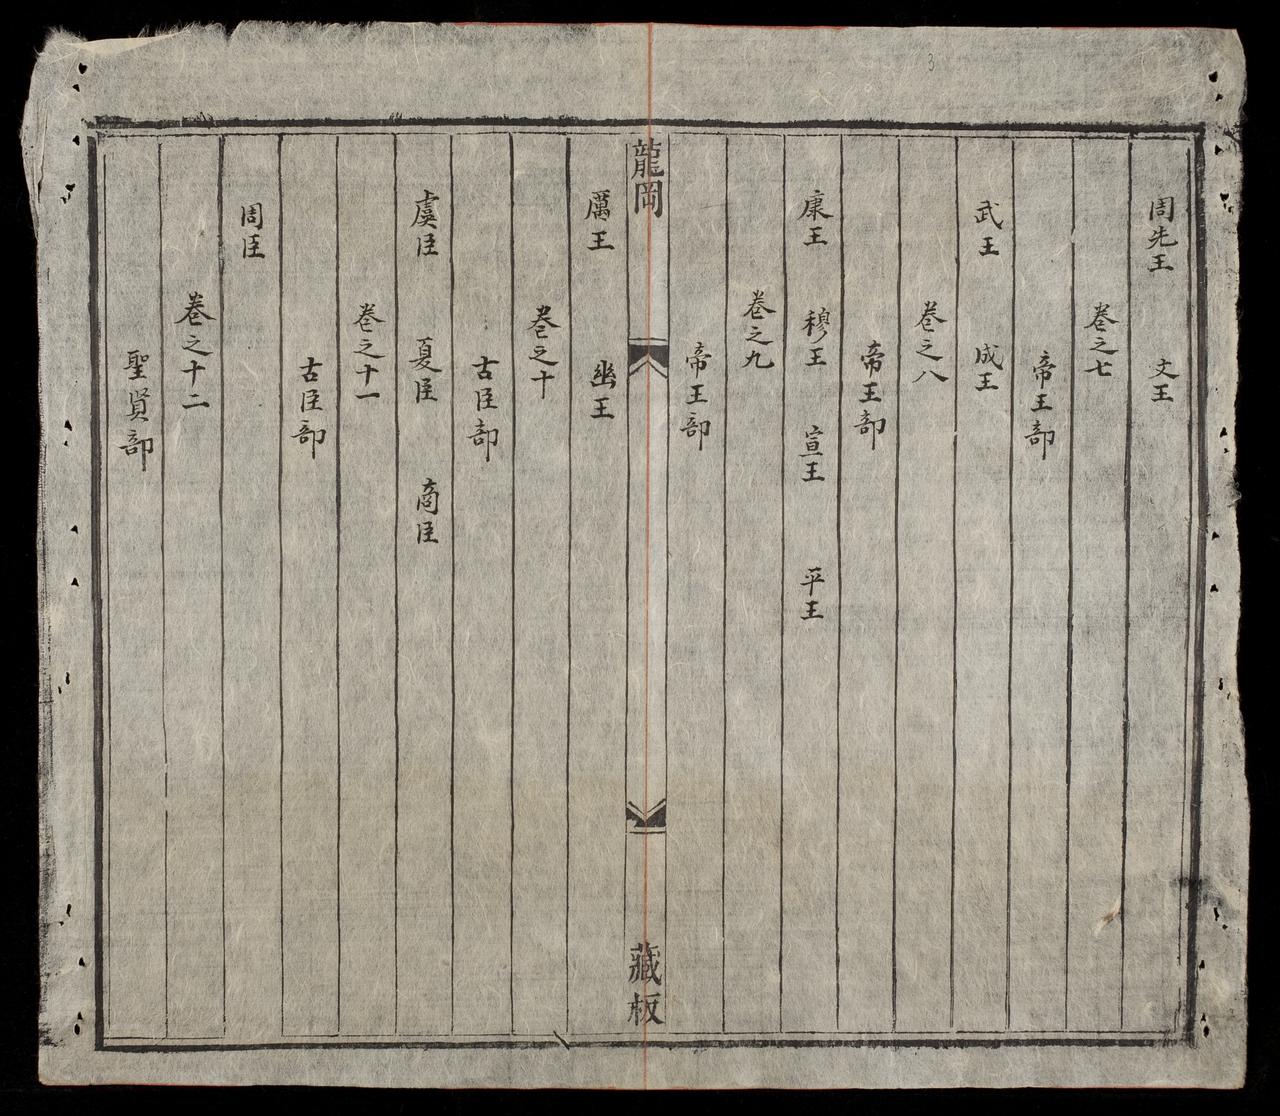 周先王 文王
卷之七
帝王部
武王 成王
卷之八
帝王部
康王 穆王 宣王 平王
卷之九
帝王部
龍岡
藏板
厲王 幽王
卷之十
古臣部
虞臣 夏臣 商臣
卷之十一
古臣部
周臣
卷之十二
聖賢部
3